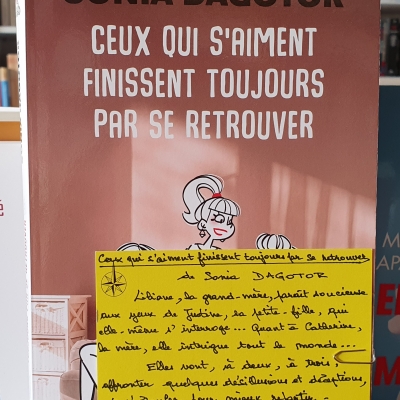 SONIA DAGOTOR
CEUX QUI S'AIMENT
FINISSENT TOUJOURS
PAR SE RETROUVER
Ceux qui s'aiment finissent toujours par se retrouver
de Sonia DAGOTOR
Liliane, la grand-mère, paraît soucieuse
aux yeux de Justine, la petite-fille, qui
elle-même s'interroge... Quant à Catherine,
la mère, elle intrigue tout le monde...
Elles vont, à deux, à trois,
affronter quelques désillusions et déceptions,
pour mieux
é
M
AP
E
M